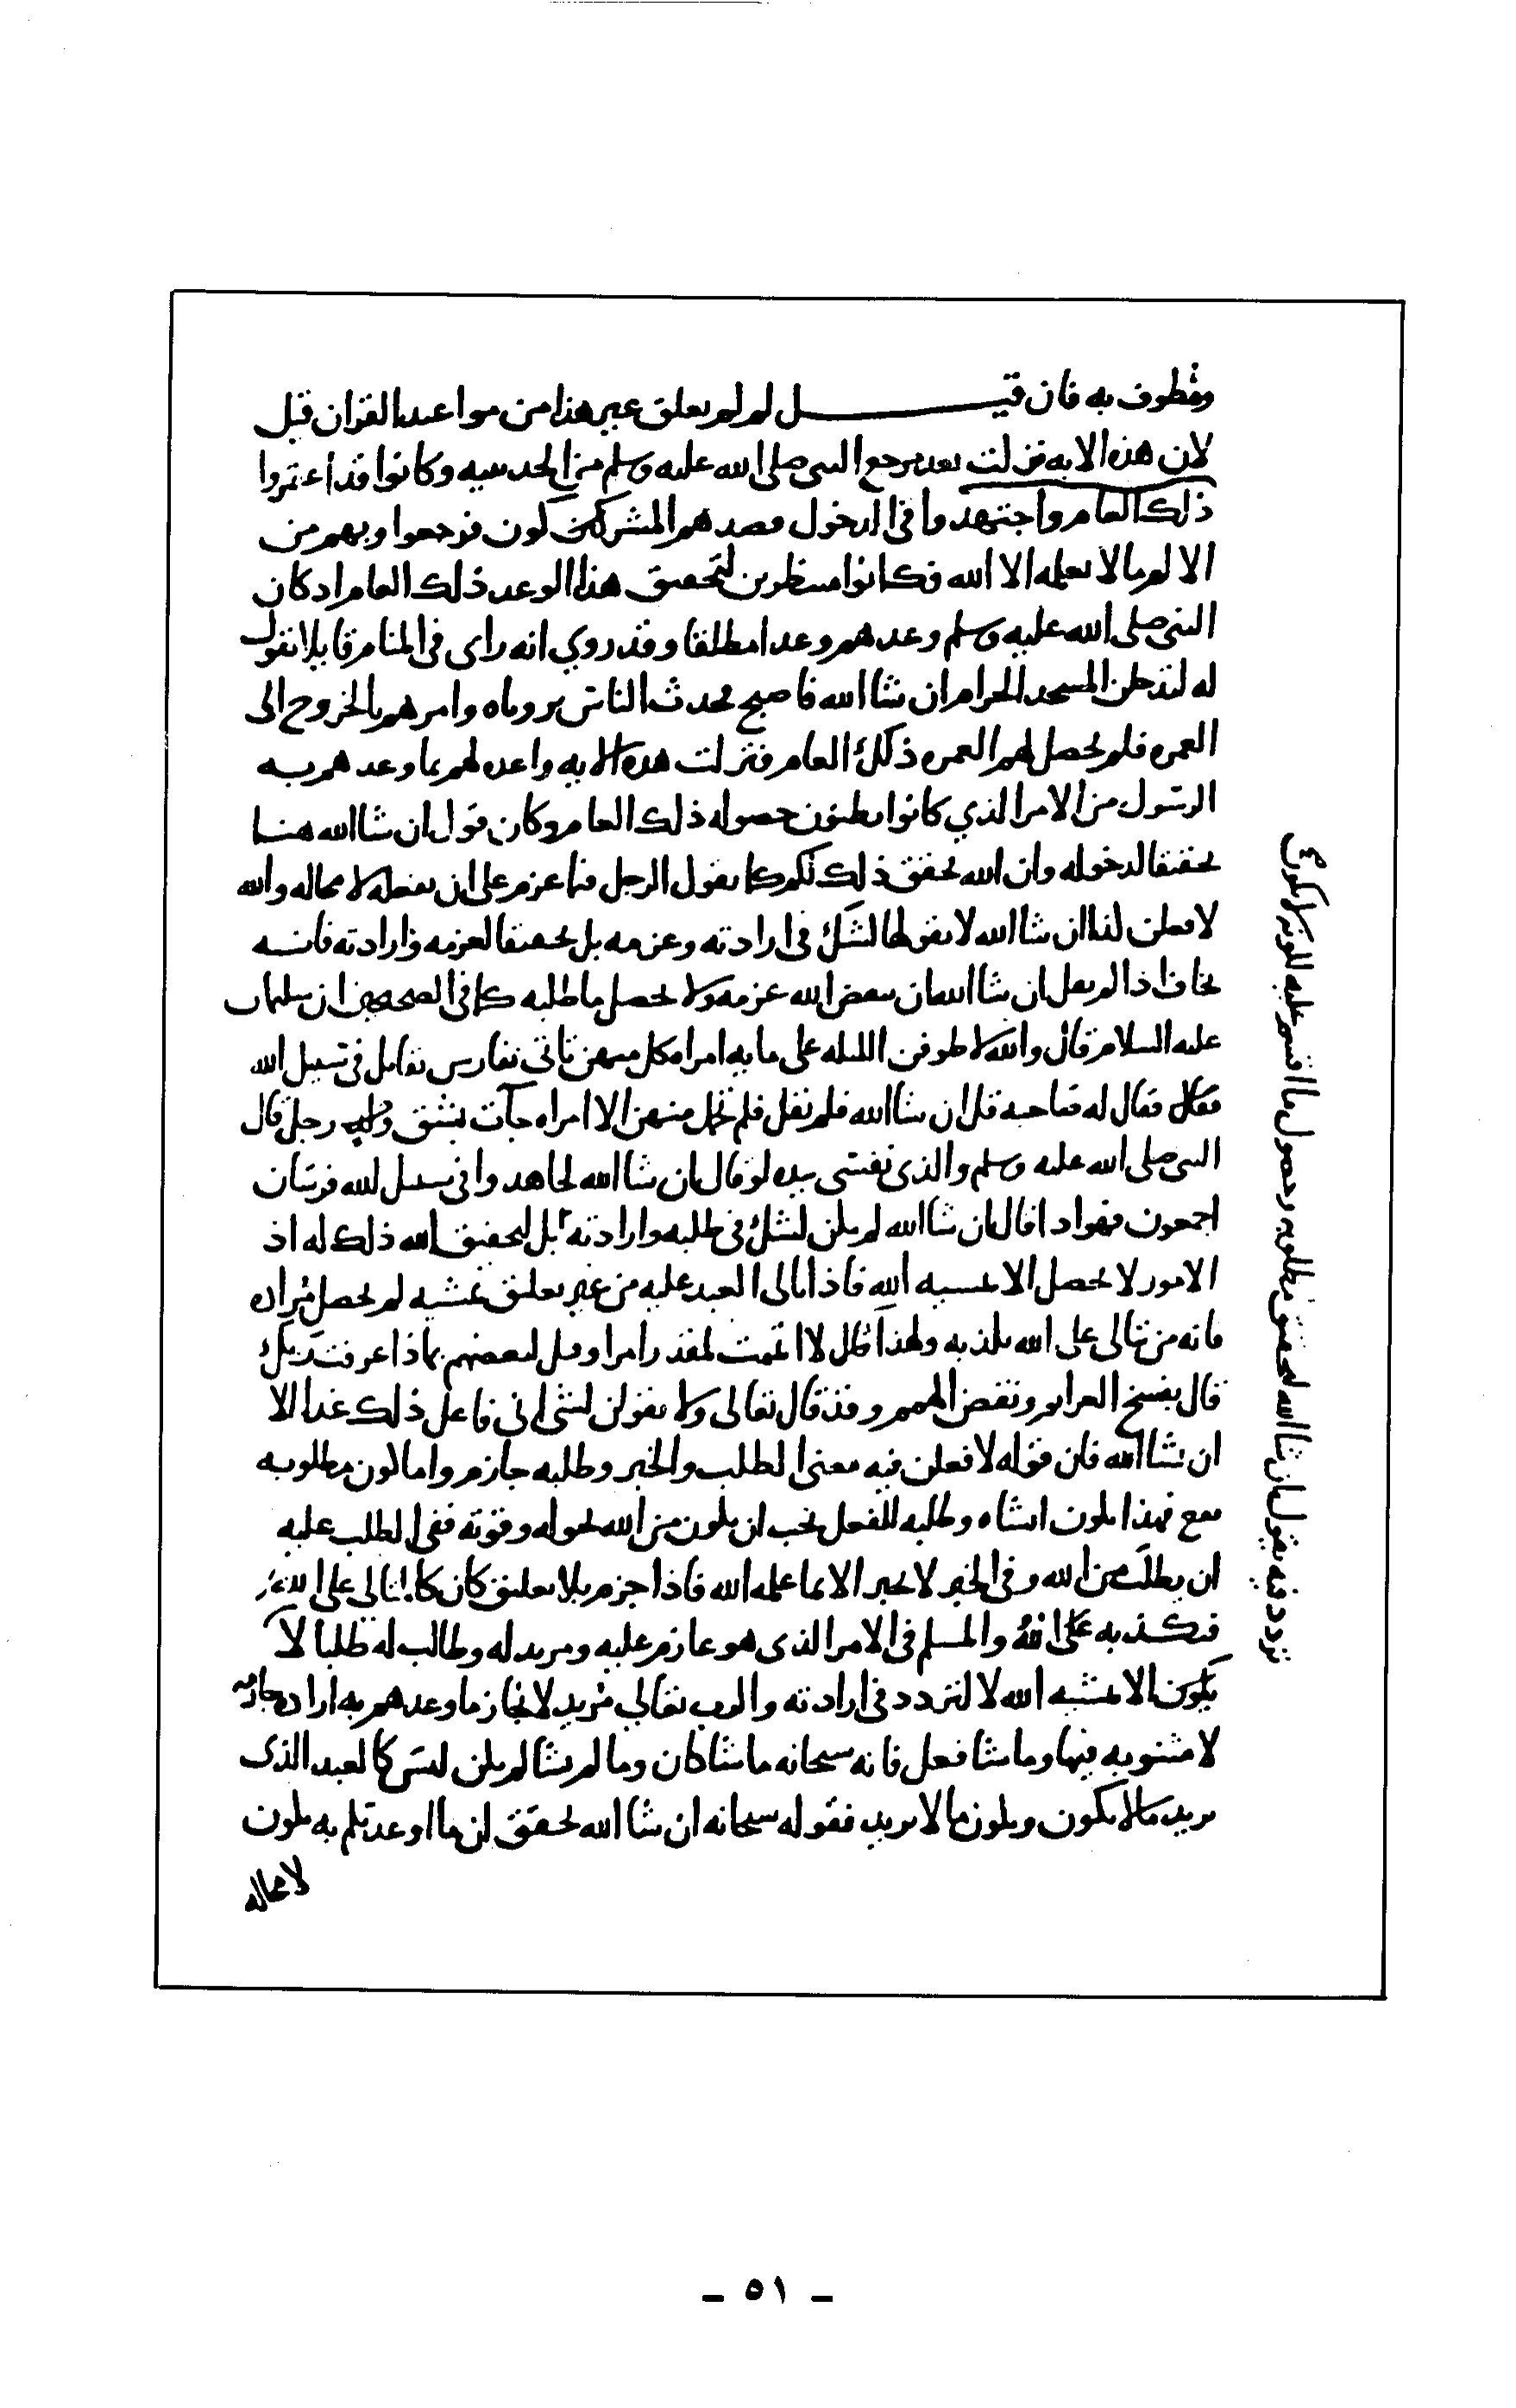 ومطوف به فان قيل لم لم يعلق غير هذا من مواعيد القران قيل
لان هذه الايه نزلت بعد مرجع النبي صلى الله عليه وسلم من الحديبيه وكانوا قد اعتمروا
ذلك العام واجتهدوا في الدخول فصدهم المشركون فرجعوا وبهم من
الالم مالا يعلمه الا الله فكانوا منتظرين لتحقيق هذا الوعد ذلك العام اذ كان
النبي صلى الله عليه وسلم وعدهم وعدا مطلقا وقد روي انه راى في المنام قايلا يقول
له لتدخلن المسجد الحرام ان شا الله فاصبح فحدث الناس بروياه وامرهم بالخروج الى
العمره فلم يحصل لهم العمره ذلك العام فنزلت هذه الايه واعده لهم بما وعدهم به
الرسول من الامر الذي كانوا يظنون حصوله ذلك العام وكان قوله ان شا الله هنا
تحقيقا لدخوله وان الله يحقق ذلك لكم كما يقول الرجل فيما عزم على ان يفعله لا محاله والله
لافعلن كذا ان شا الله لا يقولها لشك في ارادته وعزمه بل تحقيقا لعزمه وارادته فانه
يخاف اذا لم يقل ان شا الله ان ينقض الله عزمه ولا يحصل ما طلبه كما في الصحيحين ان سليمان
عليه السلام قال والله لاطوفن الليله على مايه امراه كل منهن تاتي بفارس يقاتل في سبيل الله
فقال له صاحبه قل ان شا الله فلم يقل فلم تحمل منهن الا امراه جآت بشق ولد رجل قال
النبي صلى الله عليه وسلم والذي نفسي بيده لو قال ان شا الله لجاهدوا في سبيل الله فرسان
اجمعون فهو اذا قال ان شا الله لم يكن لشك في طلبه وارادته بل لتحقيق الله ذلك له اذ
الامور لا تحصل الا بمشيه الله فاذا تالى العبد عليه من غير تعليق بمشيه لم يحصل مراده
فانه من تالى على الله يكذبه ولهذا قال لا اتممت لمقدر امرا وقيل لبعضهم بماذا عرفت ربك
قال بفسخ العزايم ونقض الهمم وقد قال تعالى ولا تقولن لشي اني فاعل ذلك غدا الا
ان يشا الله فان قوله لافعلن فيه معنى الطلب والخبر وطلبه جازم واما كون مطلوبه
يقع فهذا يكون انشاه وطلبه للفعل يجب ان يكون من الله بحوله وقوته ففي الطلب عليه
ان يطلب من الله وفي الخبر لا يخبر الا بما علمه الله فاذا جزم بلا تعليق كان كالمتالى على الله
فيكذبه على الله والمسلم في الامر الذي هو عازم عليه ومريد له وطالب له طلبا لا
يكون الا بمشيه الله لا لتردد في ارادته والرب تعالى مريد لانجاز ما وعدهم به اراده جازمه
لا مثنويه فيها وما شا فعل فانه سبحانه ما شا كان وما لم يشا لم يكن ليس كالعبد الذي
يريد مالا يكون ويكون مالا يريد فقوله سبحانه ان شا الله تحقق ان ما اوعدتكم به يكون
لا محاله
تردد فيه يقول ان شا الله لتحقق مطلوبه وحصول ما اقسم عليه لكونه لا يكون
- ٥١ -